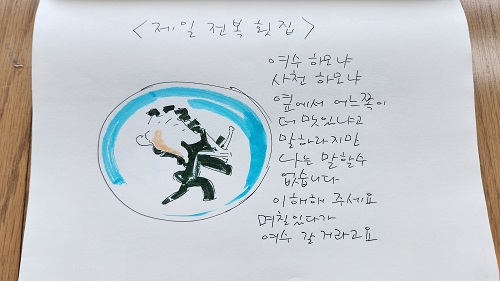 <제일 전복 횟집>
여수 하모냐
사천 하모냐
옆에서 어느쪽이
더 맛있냐고
말하라지만
나는 말할수
없습니다
이해해 주세요
며칠있다가
여수 갈 거라고요